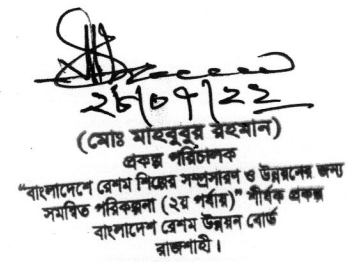 ২৮/০৭/২২
(মোঃ মাহবুবুর রহমান)
প্রকল্প পরিচালক
“বাংলাদেশে রেশম শিল্পের সম্প্রসারণ ও উন্নয়নের জন্য
সমন্বিত পরিকল্পনা (২য় পর্যায়)” শীর্ষক প্রকল্প
বাংলাদেশ রেশম উন্নয়ন বোর্ড
রাজশাহী।